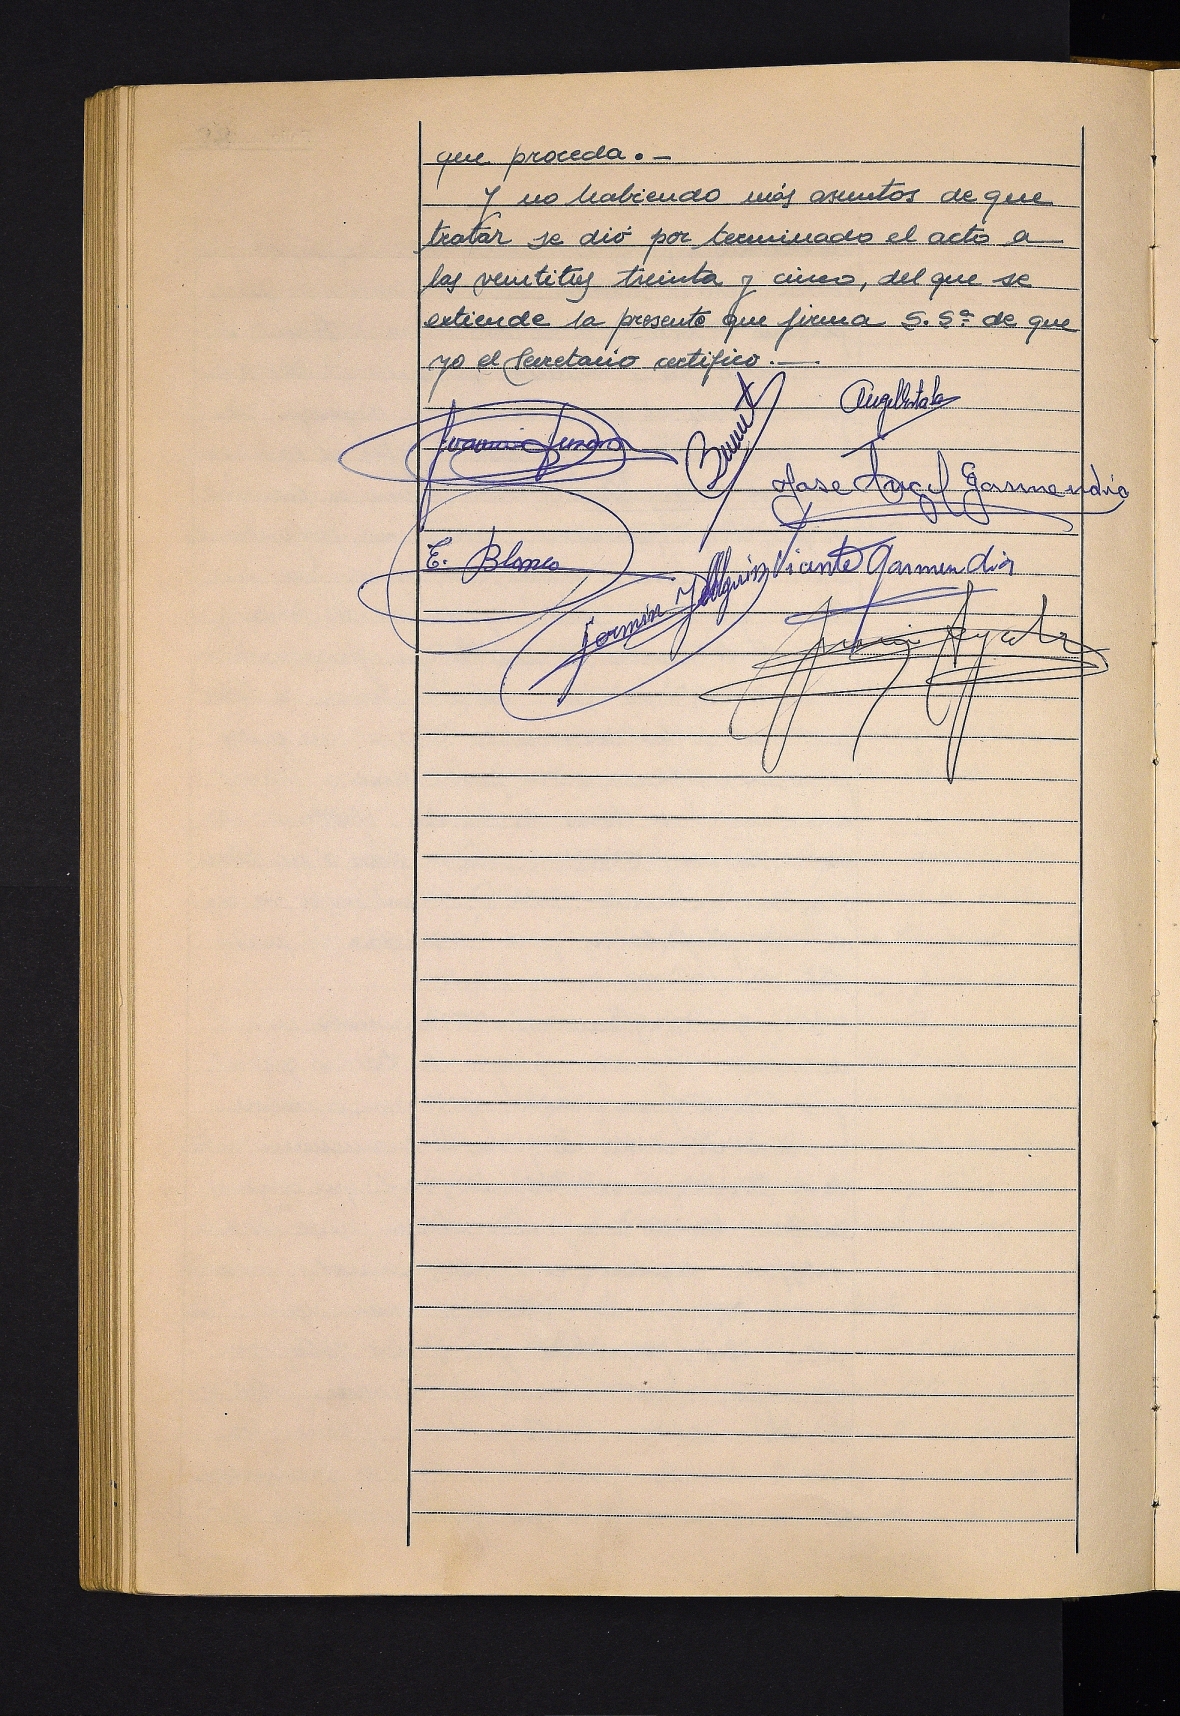 que proceda. –
Y no habiendo más asuntos de que
tratar se dió por terminado el acto a
las veintitres treinta y cinco, del que se
extiende la presente que firma S. Sª de que
yo el Secretario certifico. —
Jose Angel Garmendia
E. Blanco
Vicente Garmendia
Fermin